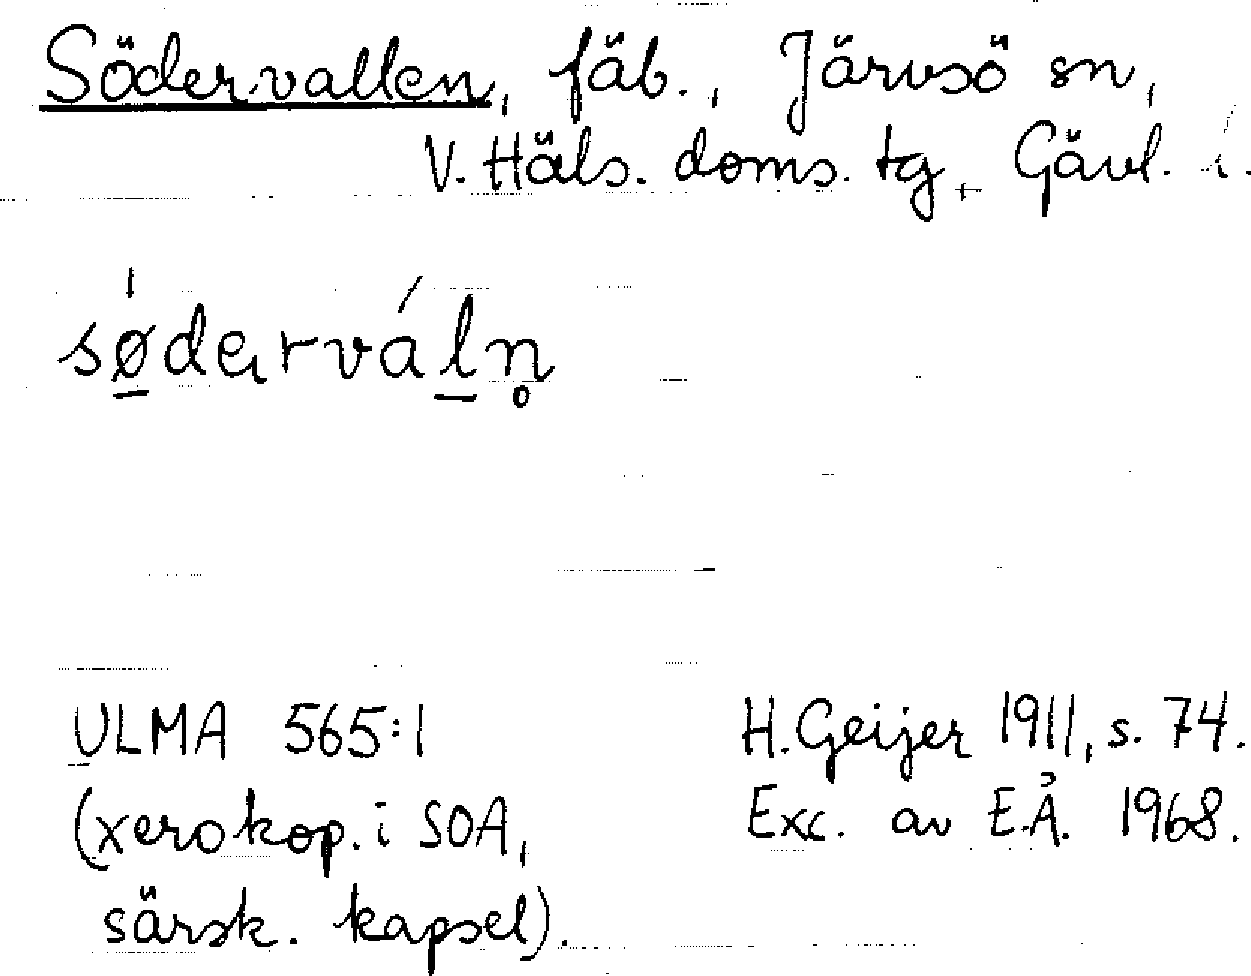 Södervallen, fäb., Järvsö sn,
V. Häls. doms. tg, Gävl. l.
sø̱dərváḻn̥
ULMA 565:1
(xerokop. i SOA,
särsk. kapsel).
H. Geijer 1911, s. 74.
Exc. av E.Å. 1968.